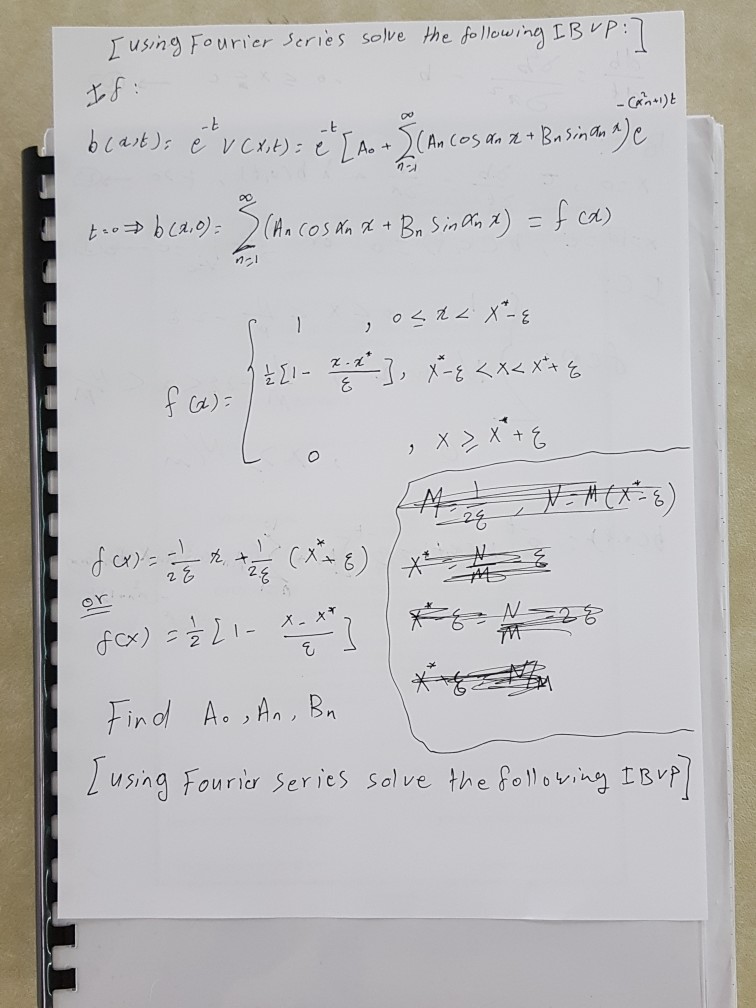 [using Fourier Series solve the following IBVP:]
If:
b(x,t) = e^{-t} V(x,t) = e^{-t} [A₀ + ∑_{n=1}^{∞} (An cos αn x + Bn sin αn x) e^{-(α²n+1)t}
t=0 ⇒ b(x,0) = ∑_{n=1}^{∞} (An cos αn x + Bn sin αn x) = f(x)
f(x) = { 1 , 0 ≤ x < X*-ε
½[1 - (x-x*)/ε], X*-ε < x < X*+ε
0 , X ≥ X*+ε
M = 1/2ε , N = M(X*-ε)
f(x) = -1/2ε x + 1/2ε (X*+ε)
X* = N/M - ε
or
f(x) = ½[1 - (x-x*)/ε]
X*-ε = N/M - 2ε
X*+ε = N/M
Find A₀, An, Bn
[using Fourier series solve the following IBVP]